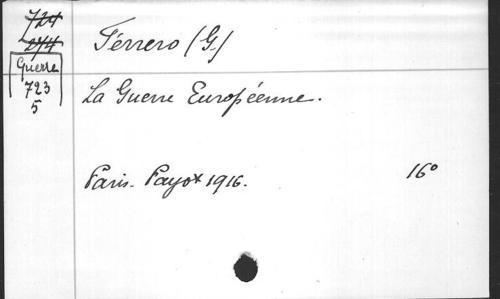 724
274
Guerre
723
5
Ferrero (G.)
La Guerre Européenne.
Paris. Payot 1916.
16°